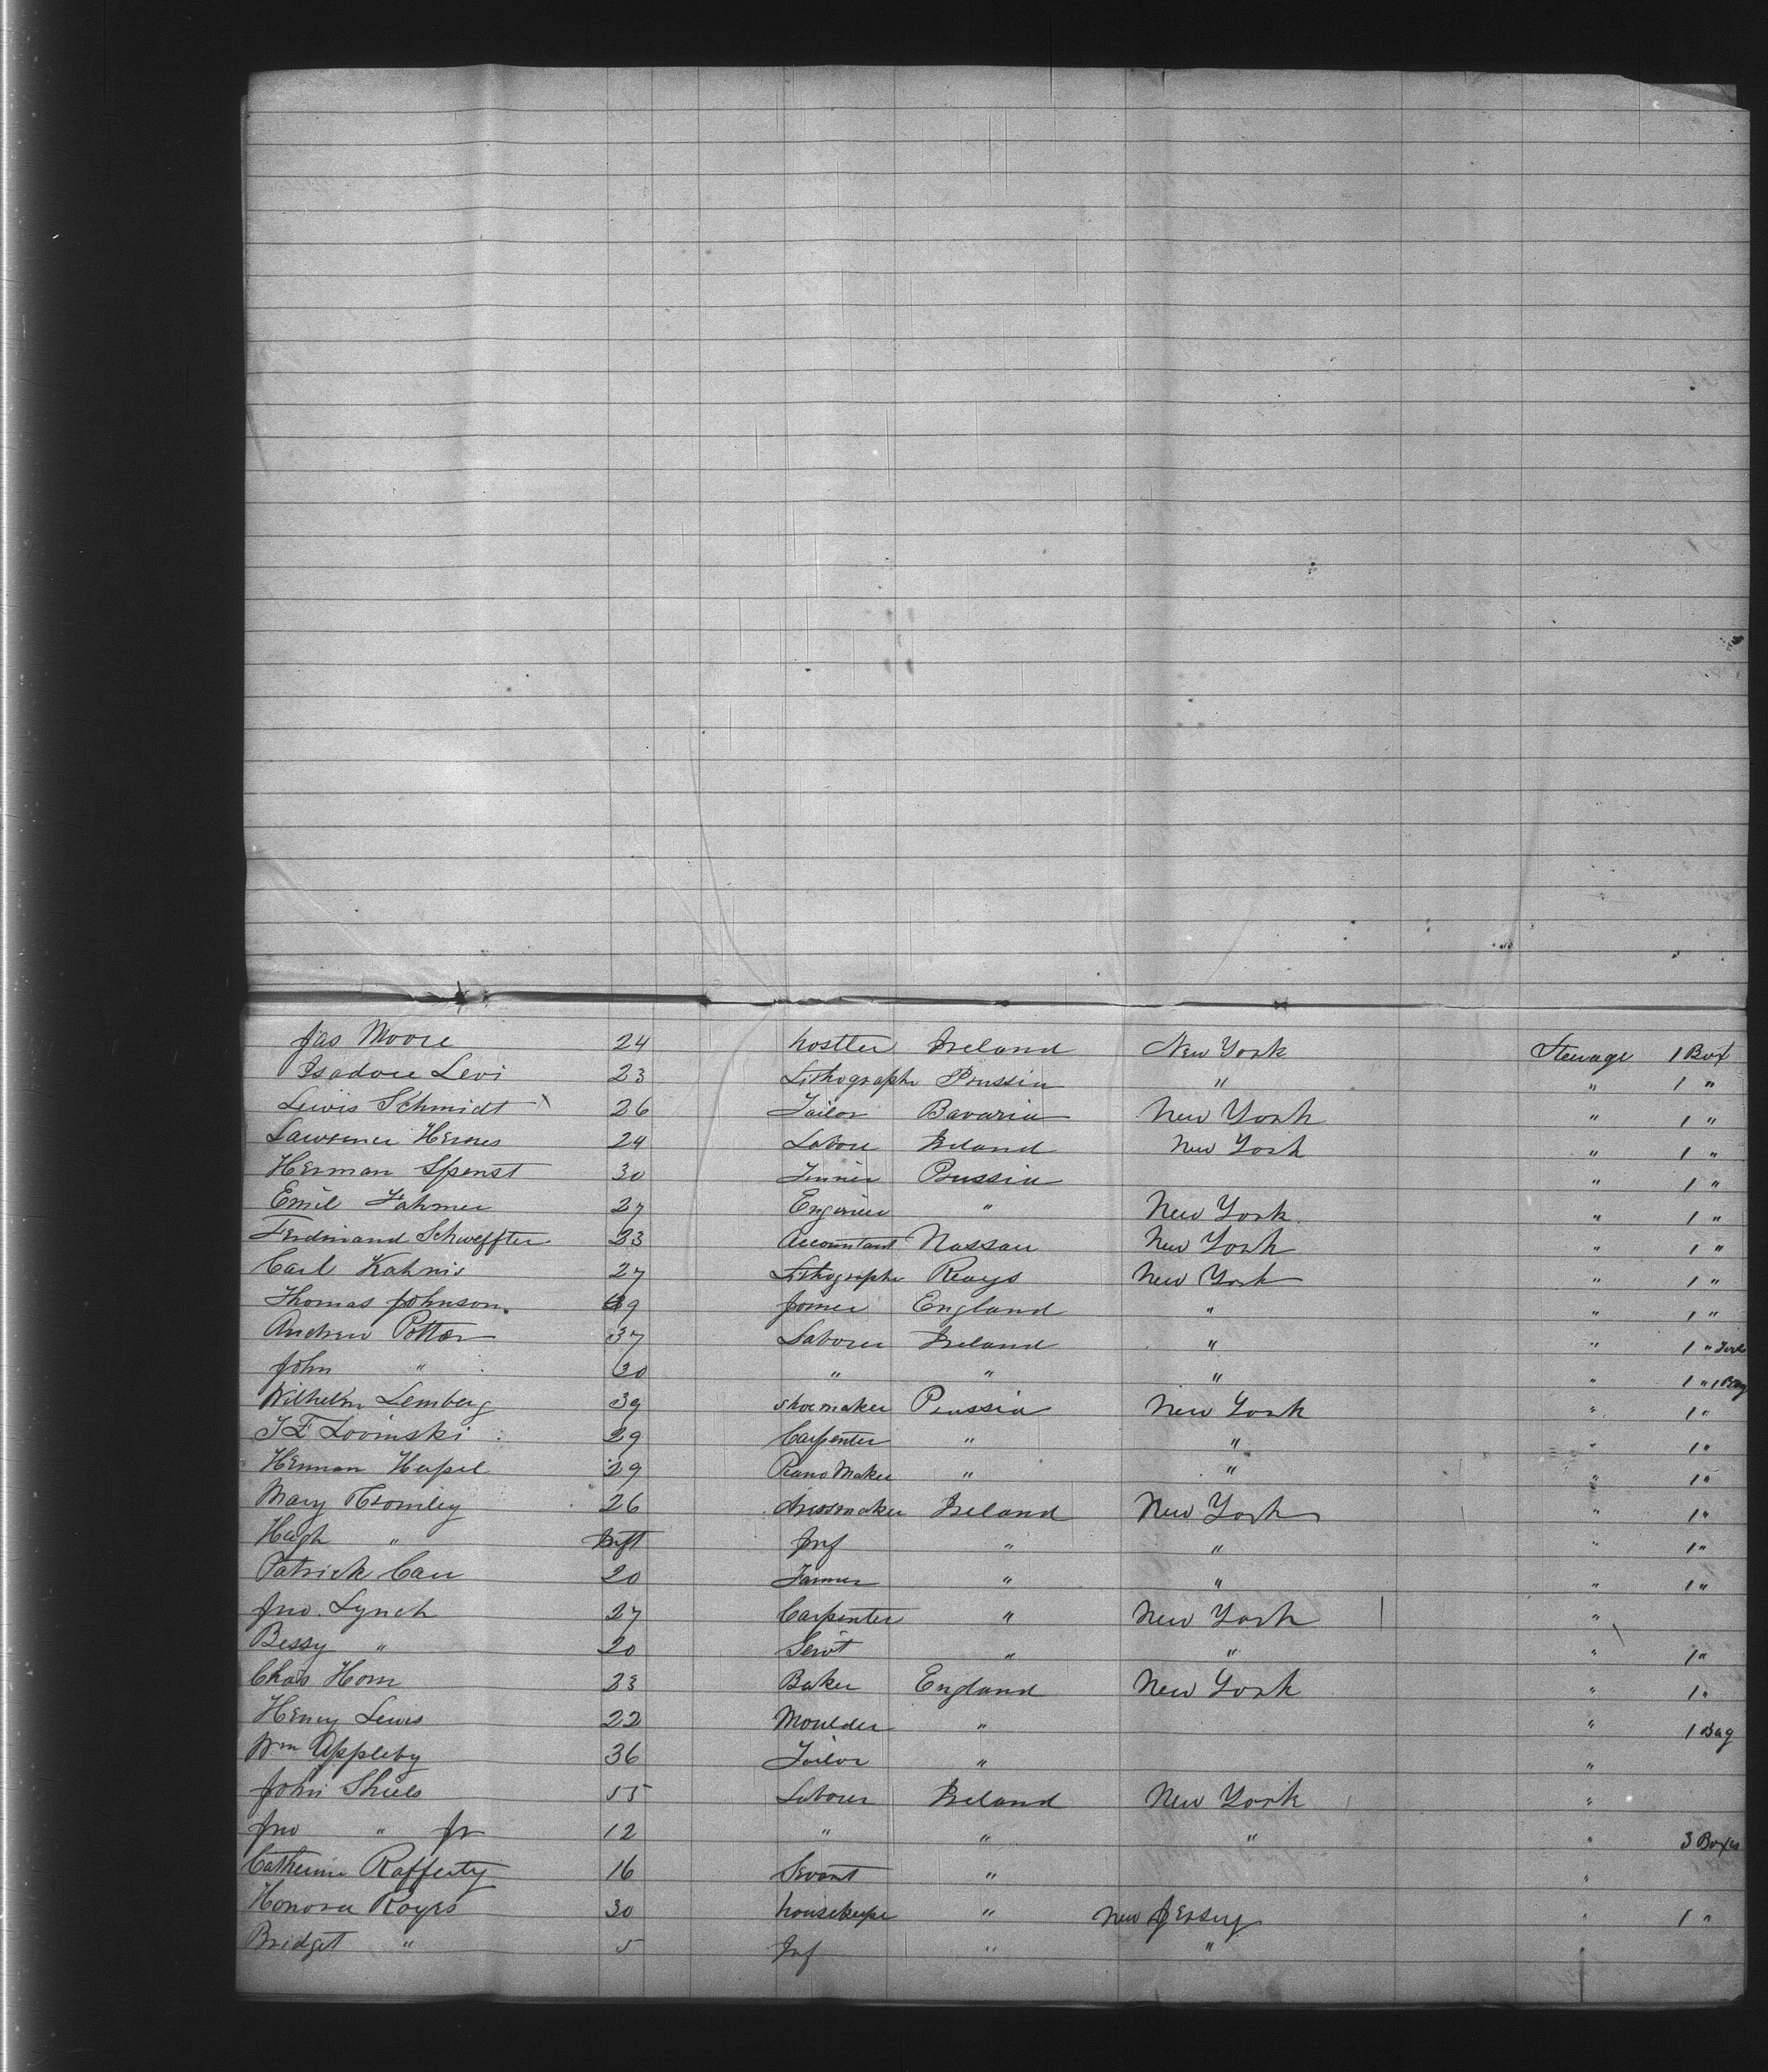 Jas Moore 24 hostler Ireland New York Steerage 1 Box
Isadore Levi 23 Lithographr Prussia " " 1 "
Lewis Schmidt 26 Tailor Bavaria New York " 1 "
Lawrence 24 Labore Ireland New York " 1 "
Herman Spenst 30 Prussia " 1 "
Emil 27 Engineer " New York " 1 "
Ferdinand 23 Accountant Nassau New York " 1 "
Carl Kahnis 27 Lithographr New York " 1 "
Thomas Johnson 39 Joiner England " " 1 "
Andrew Potter 37 Laborer Ireland " " 1 "
John " 30 " " " " 1 " 1 Bag
Wilhelm Lemberg 39 shoemaker Prussia New York " 1 "
Lovinski 29 Carpenter " " " 1 "
Herman 29 Piano Maker " " " 1 "
Mary 26 dressmaker Ireland New York " 1 "
Hugh " Inft Inf " " " 1 "
Patrick Carr 20 Farmer " " " 1 "
Jno. Lynch 27 Carpenter " New York "
Bessy " 20 Servt " " " 1 "
Chas Horn 23 Baker England New York " 1 "
Henry Lewis 22 Moulder " " 1 Bag
Wm Appleby 36 Tailor " "
John Shiels 55 Laborer Ireland New York "
Jno " Jr 12 " " " " 3 Boxes
Catherine Rafferty 16 Servant " "
Honora 30 housekeeper " New Jersey " 1 "
Bridget " 5 Inf " "